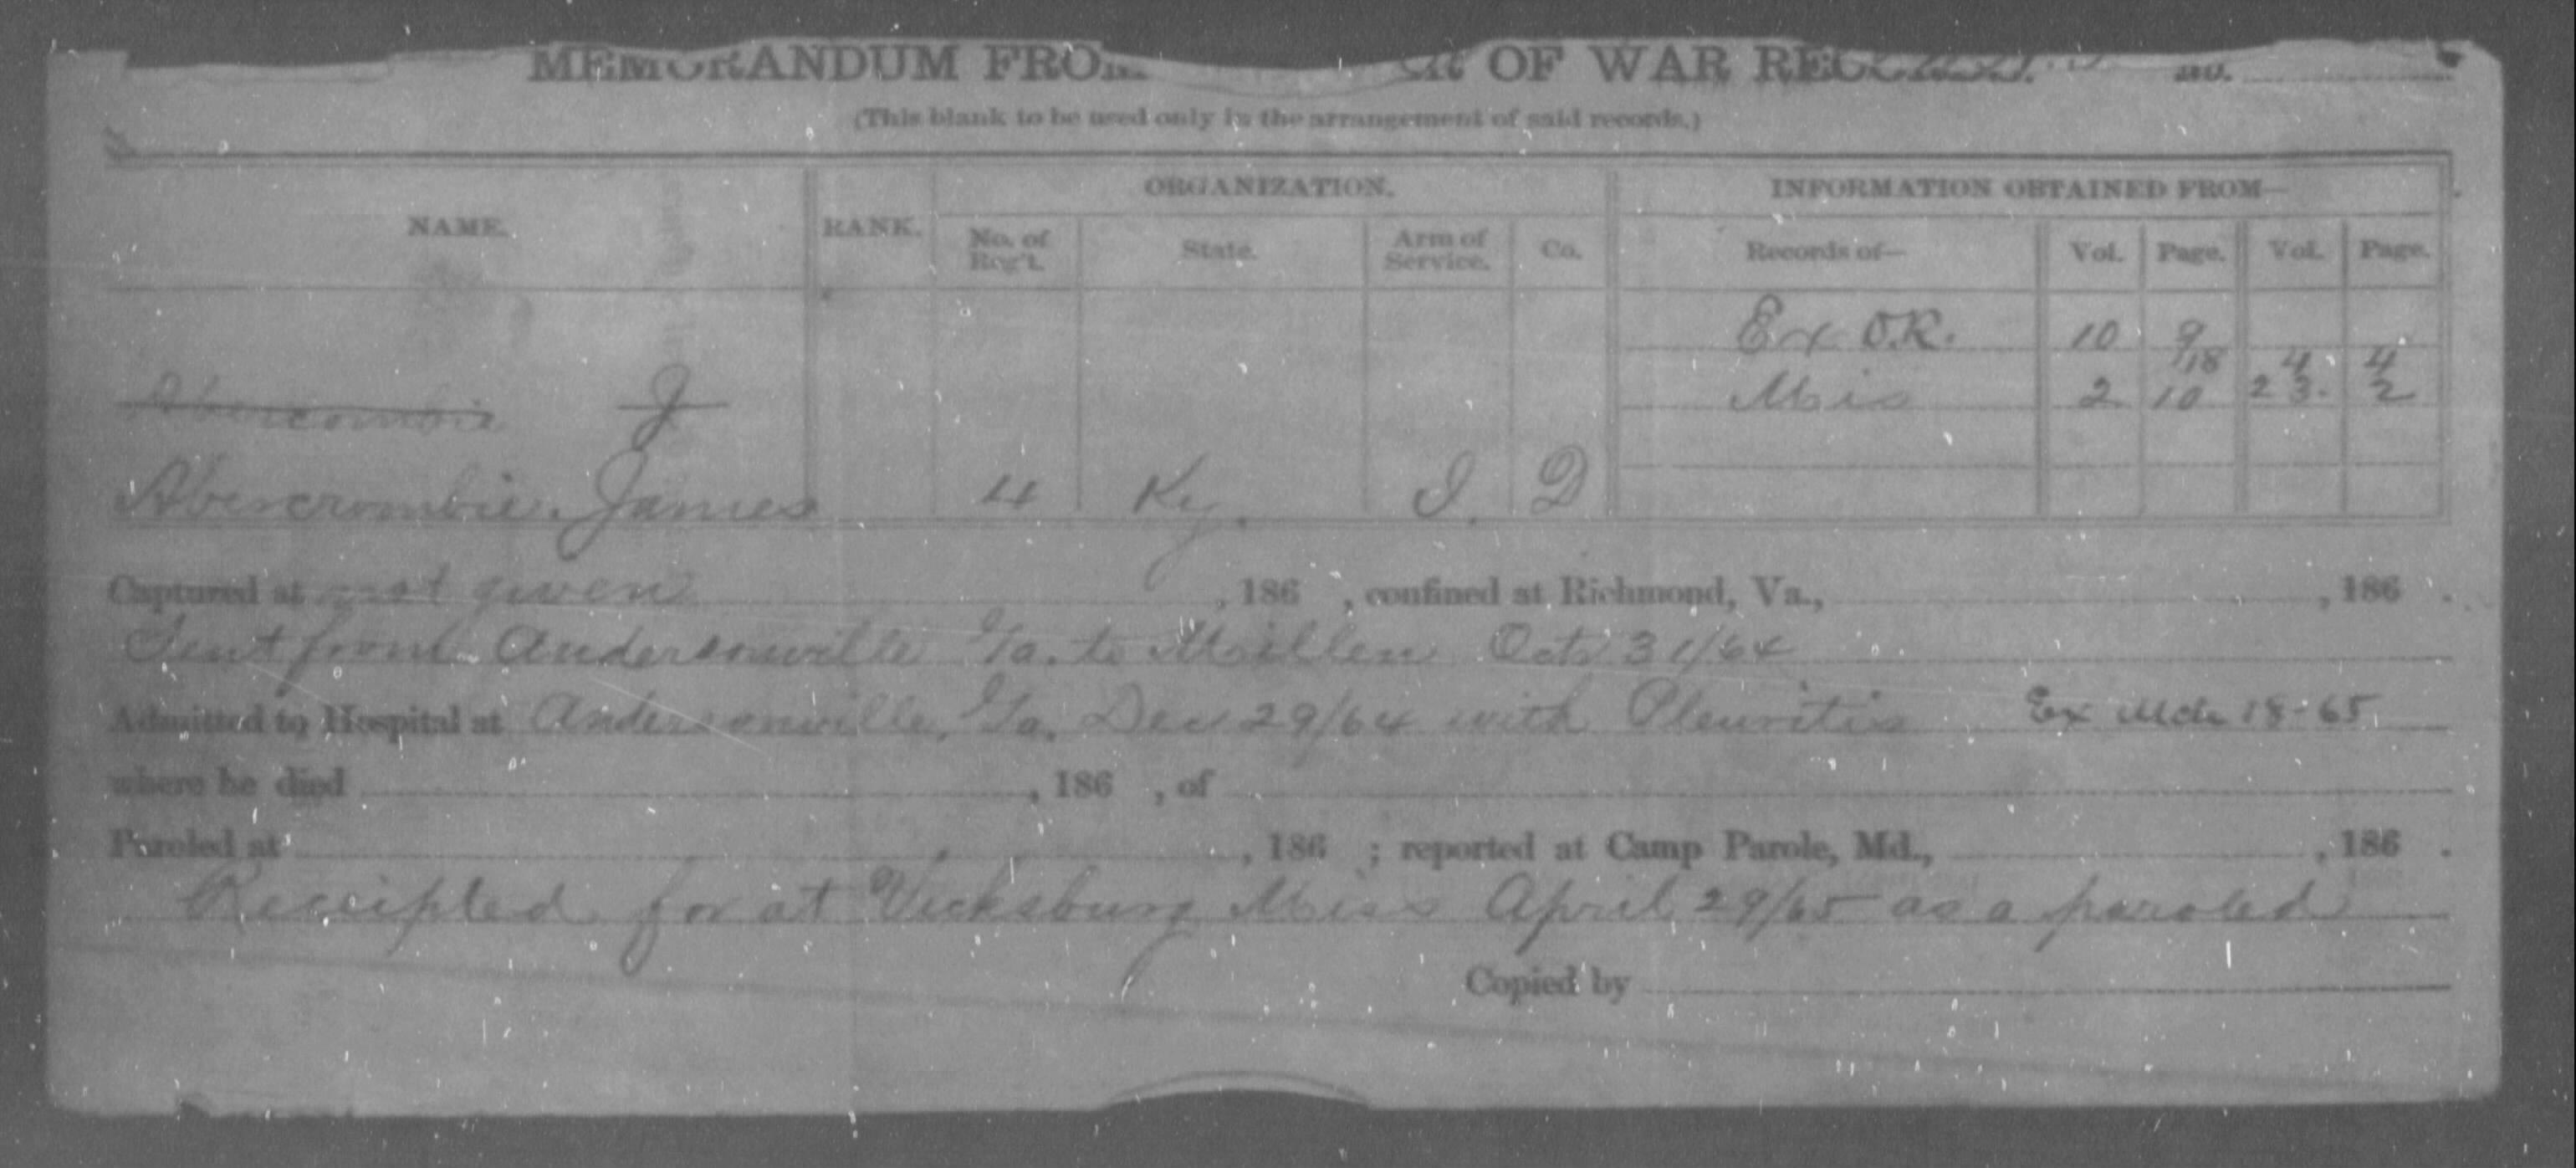 MEMORANDUM FROM OF WAR RECORDS. No.
(This blank to be used only in the arrangement of said records.)
NAME. RANK. ORGANIZATION. INFORMATION OBTAINED FROM—
No. of Reg't. State. Arm of Service. Co. Records of— Vol. Page. Vol. Page.
Ex O.R. 10 9
118 4 4
Abercombie J Mis 2 10 2 3. 2
Abercrombie, James 4 Ky. I. D
Captured at not given , 186 , confined at Richmond, Va., , 186 .
Sent from Andersonville Ga. to Millen Oct 31/64
Admitted to Hospital at Andersonville, Ga. Dec 29/64 with Pleuritis Ex Mch 18-65
where he died , 186 , of
Paroled at , 186 ; reported at Camp Parole, Md., , 186 .
Receipted for at Vicksburg Miss April 29/65 as a paroled
Copied by